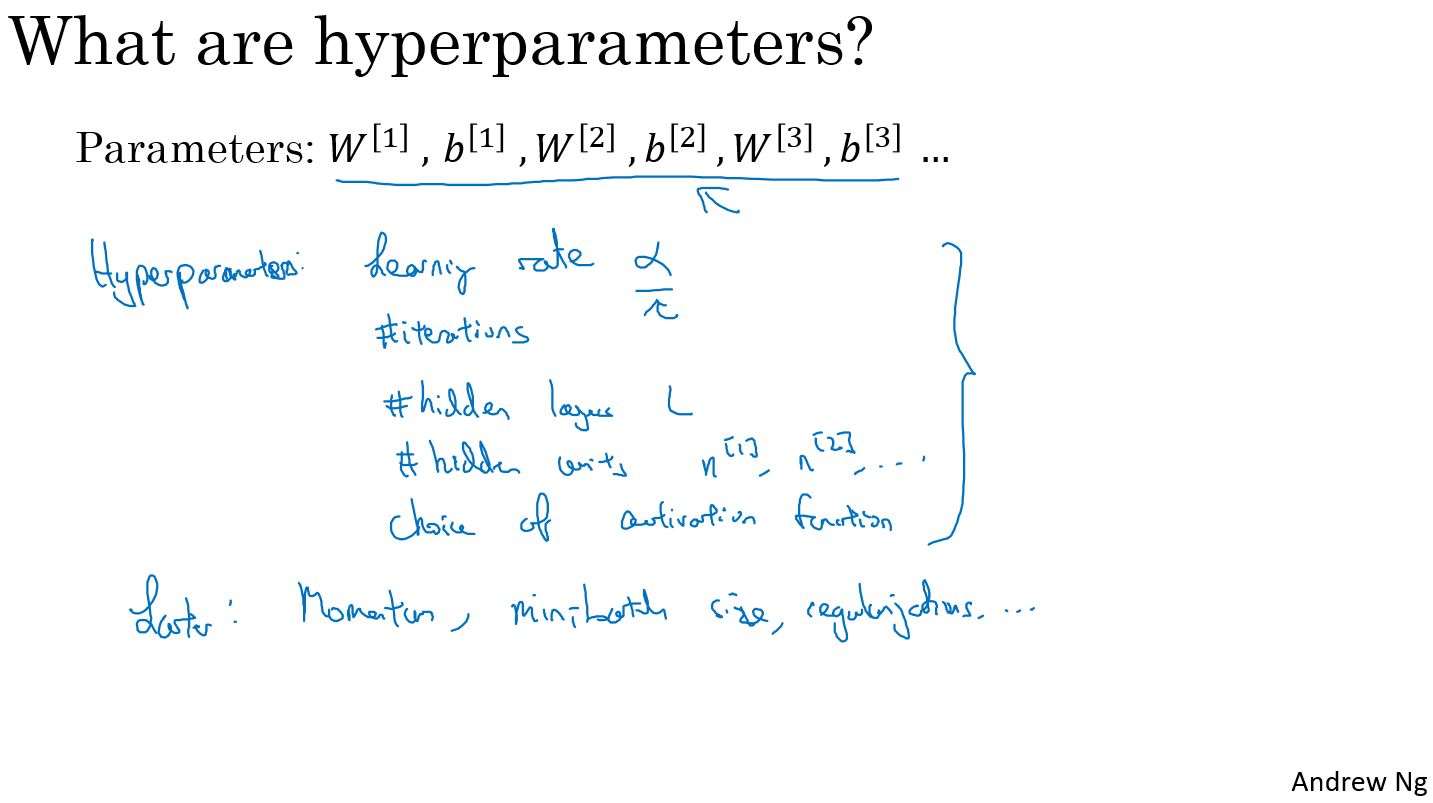 What are hyperparameters?
Parameters: W^[1] , b^[1] , W^[2] , b^[2] , W^[3] , b^[3] ...
Hyperparameters: Learning rate α
#iterations
#hidden layers L
# hidden units n^[1], n^[2], ....
Choice of activation function
Later: Momentum, mini-batch size, regularizations, ...
Andrew Ng